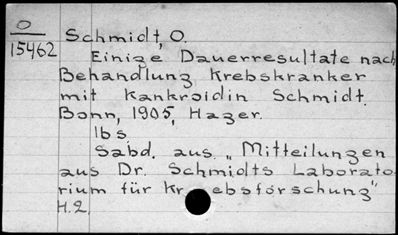 O
15462
Schmidt, O.
Einige Dauerresultate nach
Behandlung Krebskranker
mit Kankroidin Schmidt.
Bonn, 1905, Hager.
16 s.
Sabd. aus „Mitteilungen
aus Dr. Schmidts Laborato-
rium für Krebsforschung"
H.2.